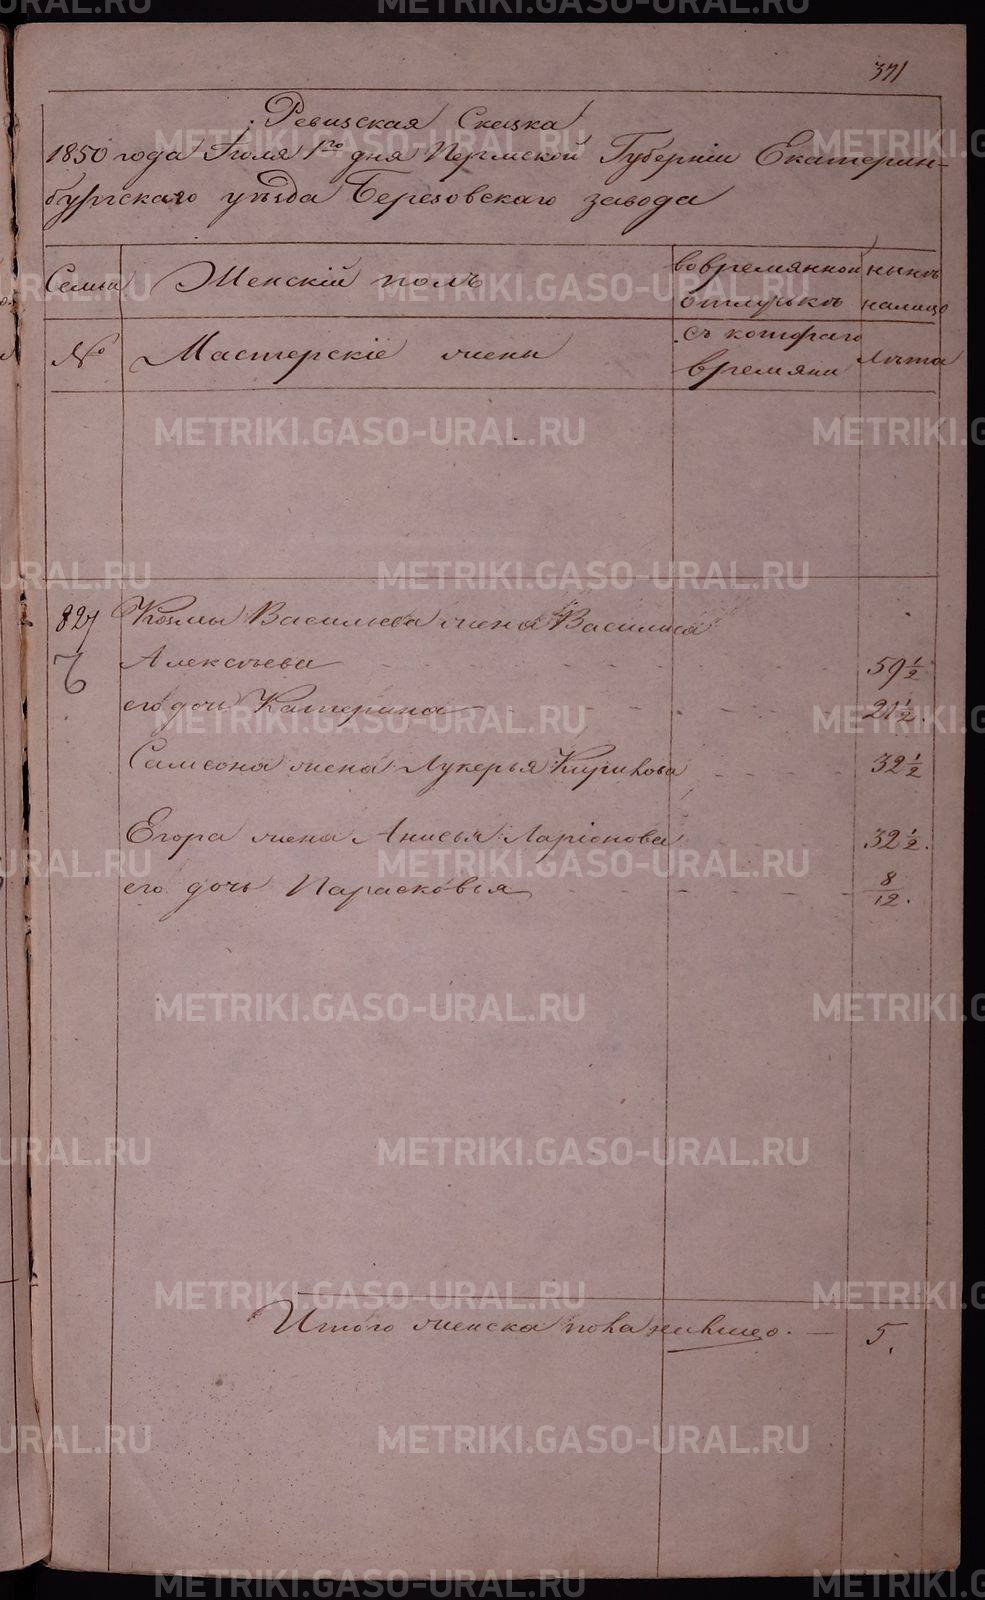 371
Ревизская Сказка
1850 года Июля 1го дня Пермской Губерніи Екатерин-
бургскаго уѣзда Березовскаго завода
Семьи Женскій полъ вовремянной отлучкѣ нынѣ налицо
№ Мастерскіе жены съ котораго времяни Лѣта
827 Козмы Васильева жена Василиса
Алексѣева 59 1/2
его дочь Катерина 21 1/2.
Самсона жена Лукерья Кирикова 32 1/2
Егора жена Анисья Ларіонова 32 1/2.
его дочь Парасковья 8/12.
Итого женска пола наличнаго. — 5.
METRIKI.GASO-URAL.RU